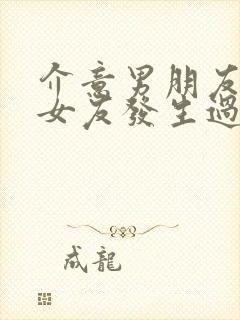 介意男朋友
女友發生過
成龍